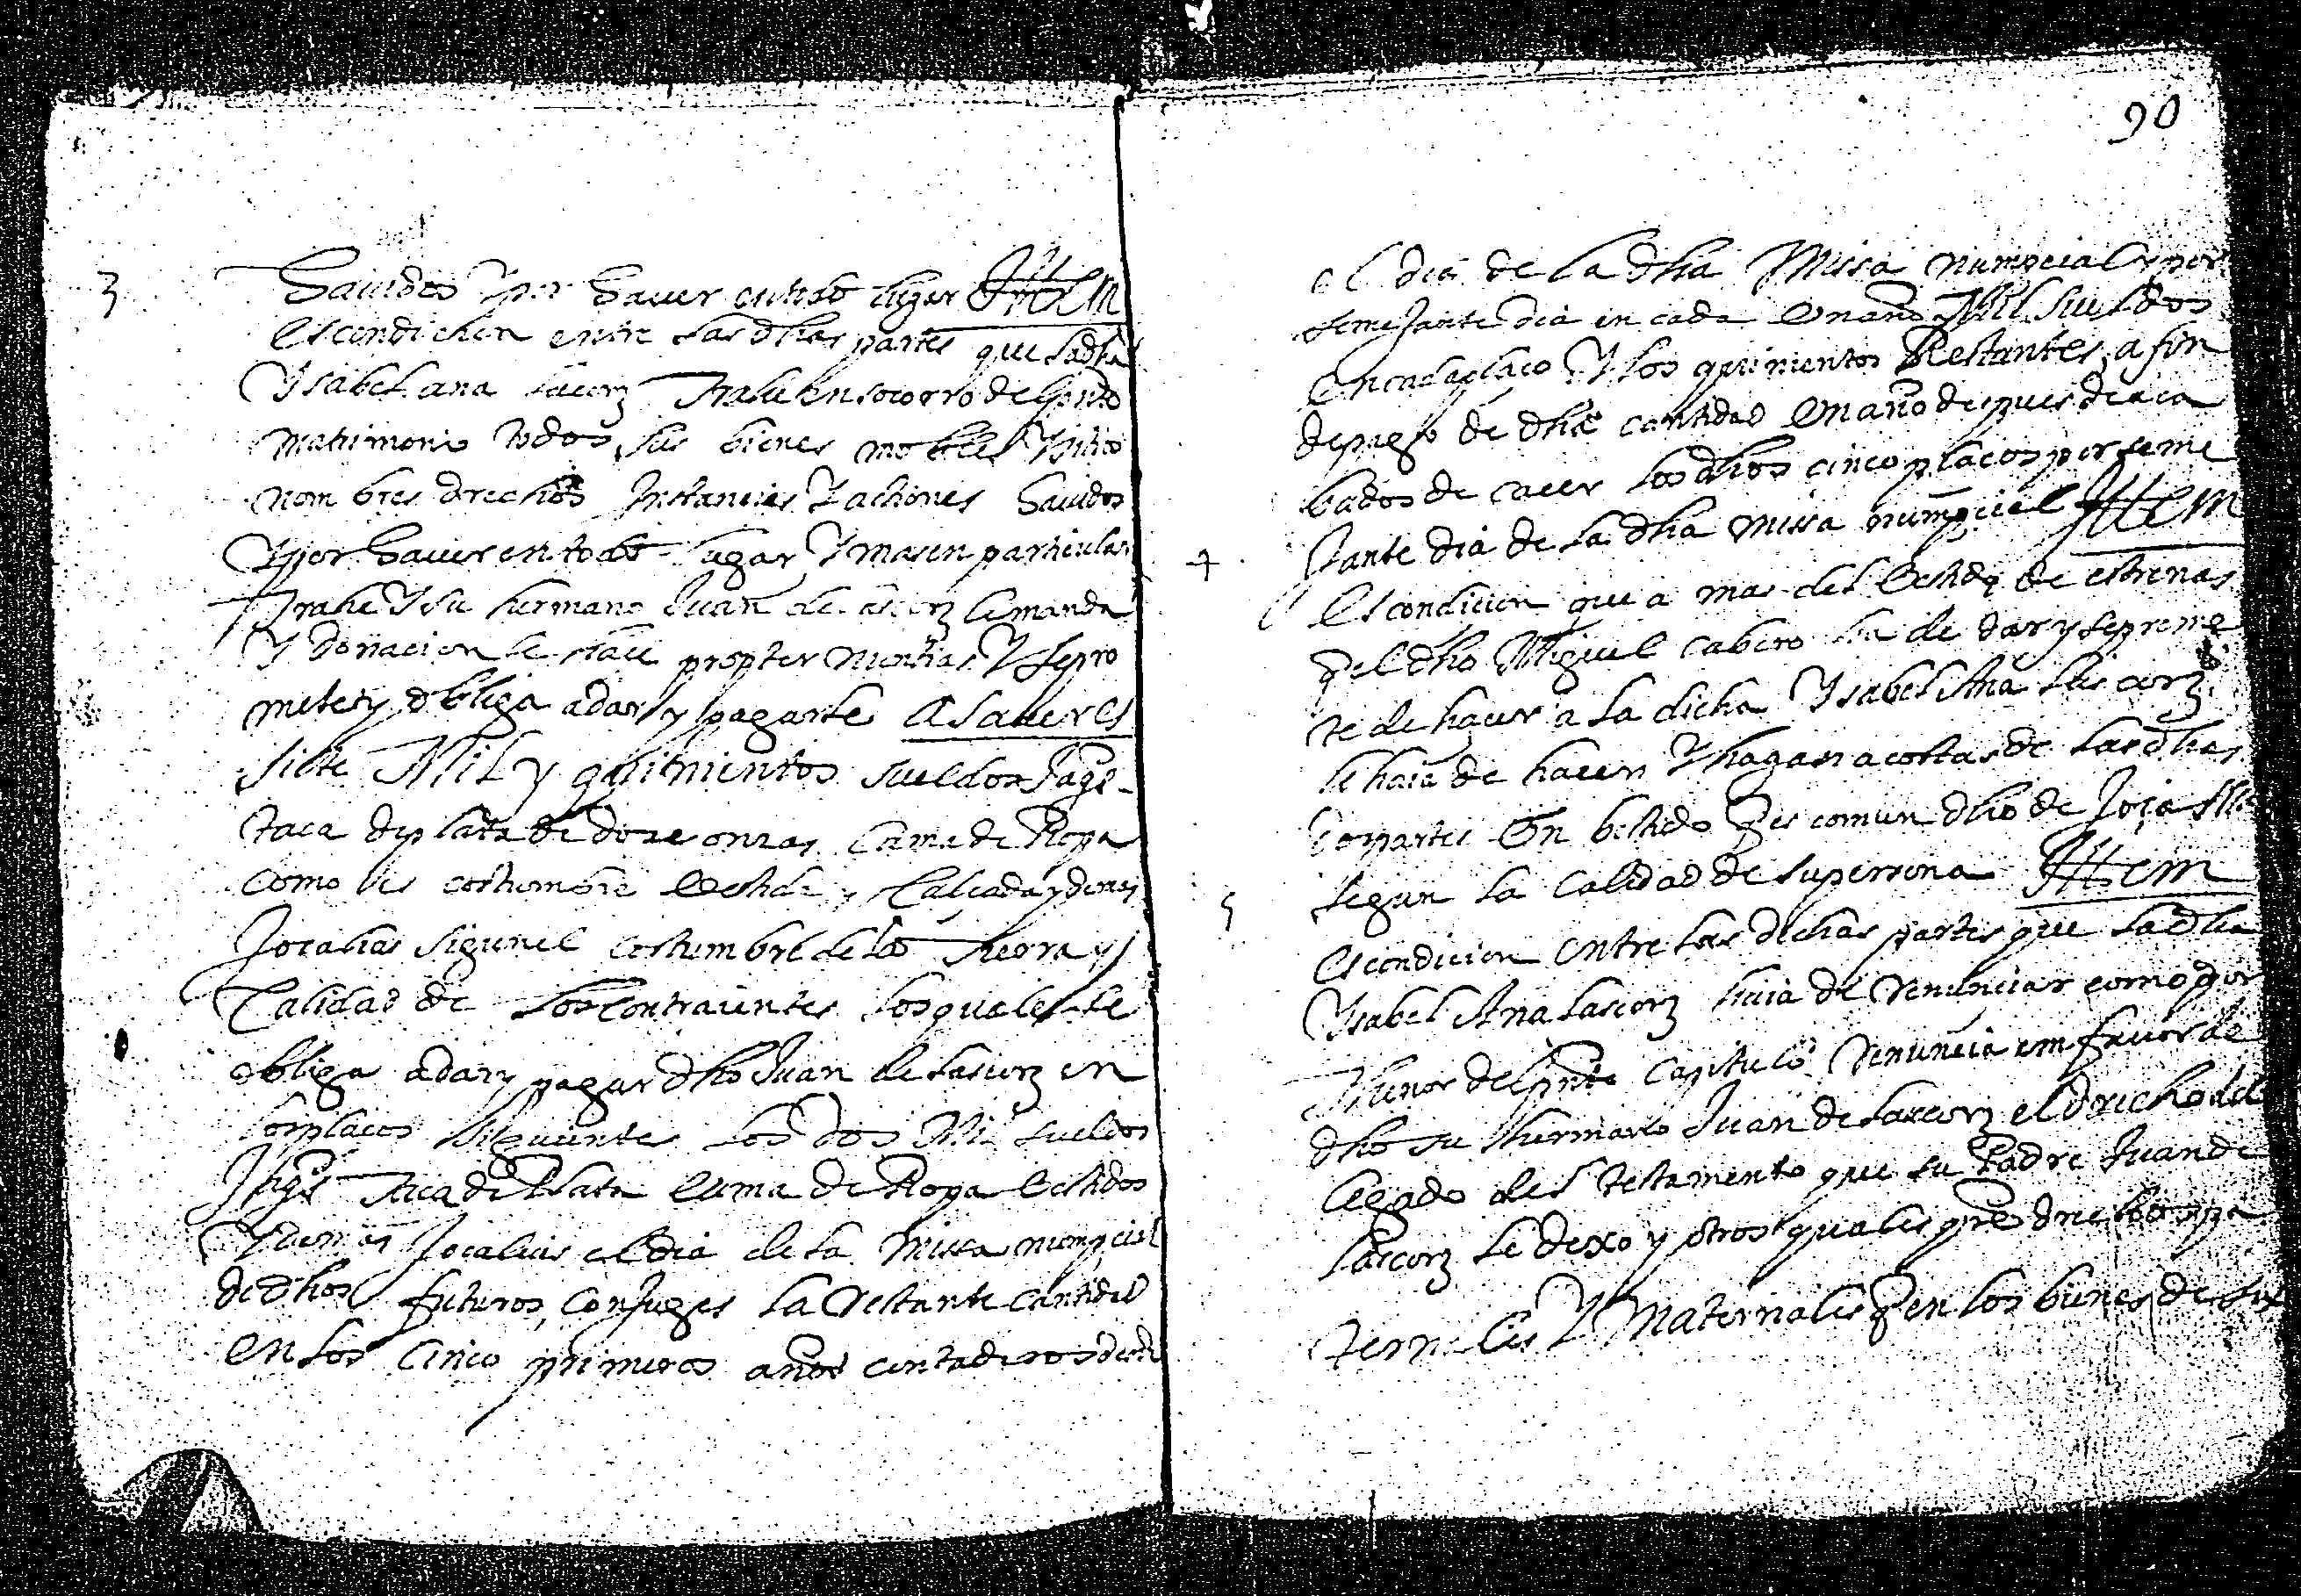 3
Hauidos y por Hauer en todo lugar Ittem
es condicion entre las dhas partes que la dha
Ysabel ana lascorz Trahe en socorro del pnte
matrimonio todos sus bienes mobles y sitios
nombres drechos Instancias Y actiones Hauidos
Y por Hauer en todo lugar Y mas en particular
Trahe Y su hermano Juan de lascorz le manda
Y donacion le hace propter nuptias Y se pro
mete y obliga a dar y pagarle a saber es
siete Mil y quinientos sueldos Jaqs
taça de plata de doze onzas cama de Ropa
como es costumbre Bestida y Calçada y demas
Jocalias Segun el costumbre de la tierra y
Calidad de los contraientes los quales se
obliga a dar y pagar dho Juan de lascorz en
los plaços siguientes los dos Mil sueldos
Jaqs Taça de Plata cama de Ropa bestidos
Y demas Jocalias el dia de la missa numpcial
de dhos futuros conjuges la restante cantidad
en los cinco primeros años contaderos desde
90
el dia de la dha Missa numpcial y por
semejante dia en cada Un año Mil sueldos
en cada plaço Y los quinientos Restantes a fin
de pago de dha cantidad Un año despues de aca
bados de caer los dhos cinco plaços por seme
jante dia de la dha missa numpcial Ittem
4
es condicion que a mas del bestido de estrenas
del dho Miguel cabero ha de dar y se prome
te de hacer a la dicha Ysabel Ana lascorz
se haia de hacer Y hagan a costas de las dhas
dos partes Un bestido q es comun dho de Joia
segun la calidad de su persona Ittem
5
es condicion entre las dichas partes que la dha
Ysabel Ana lascorz haia de renunciar como por
Thenor del pnte Capitulo renuncia em fauor de
dho su hermano Juan de lascorz el drecho del
legado del testamento que su Padre Juan de
lascorz le dexo y otros quales qre drechos pa
ternales Y Maternales q en los bienes de sus